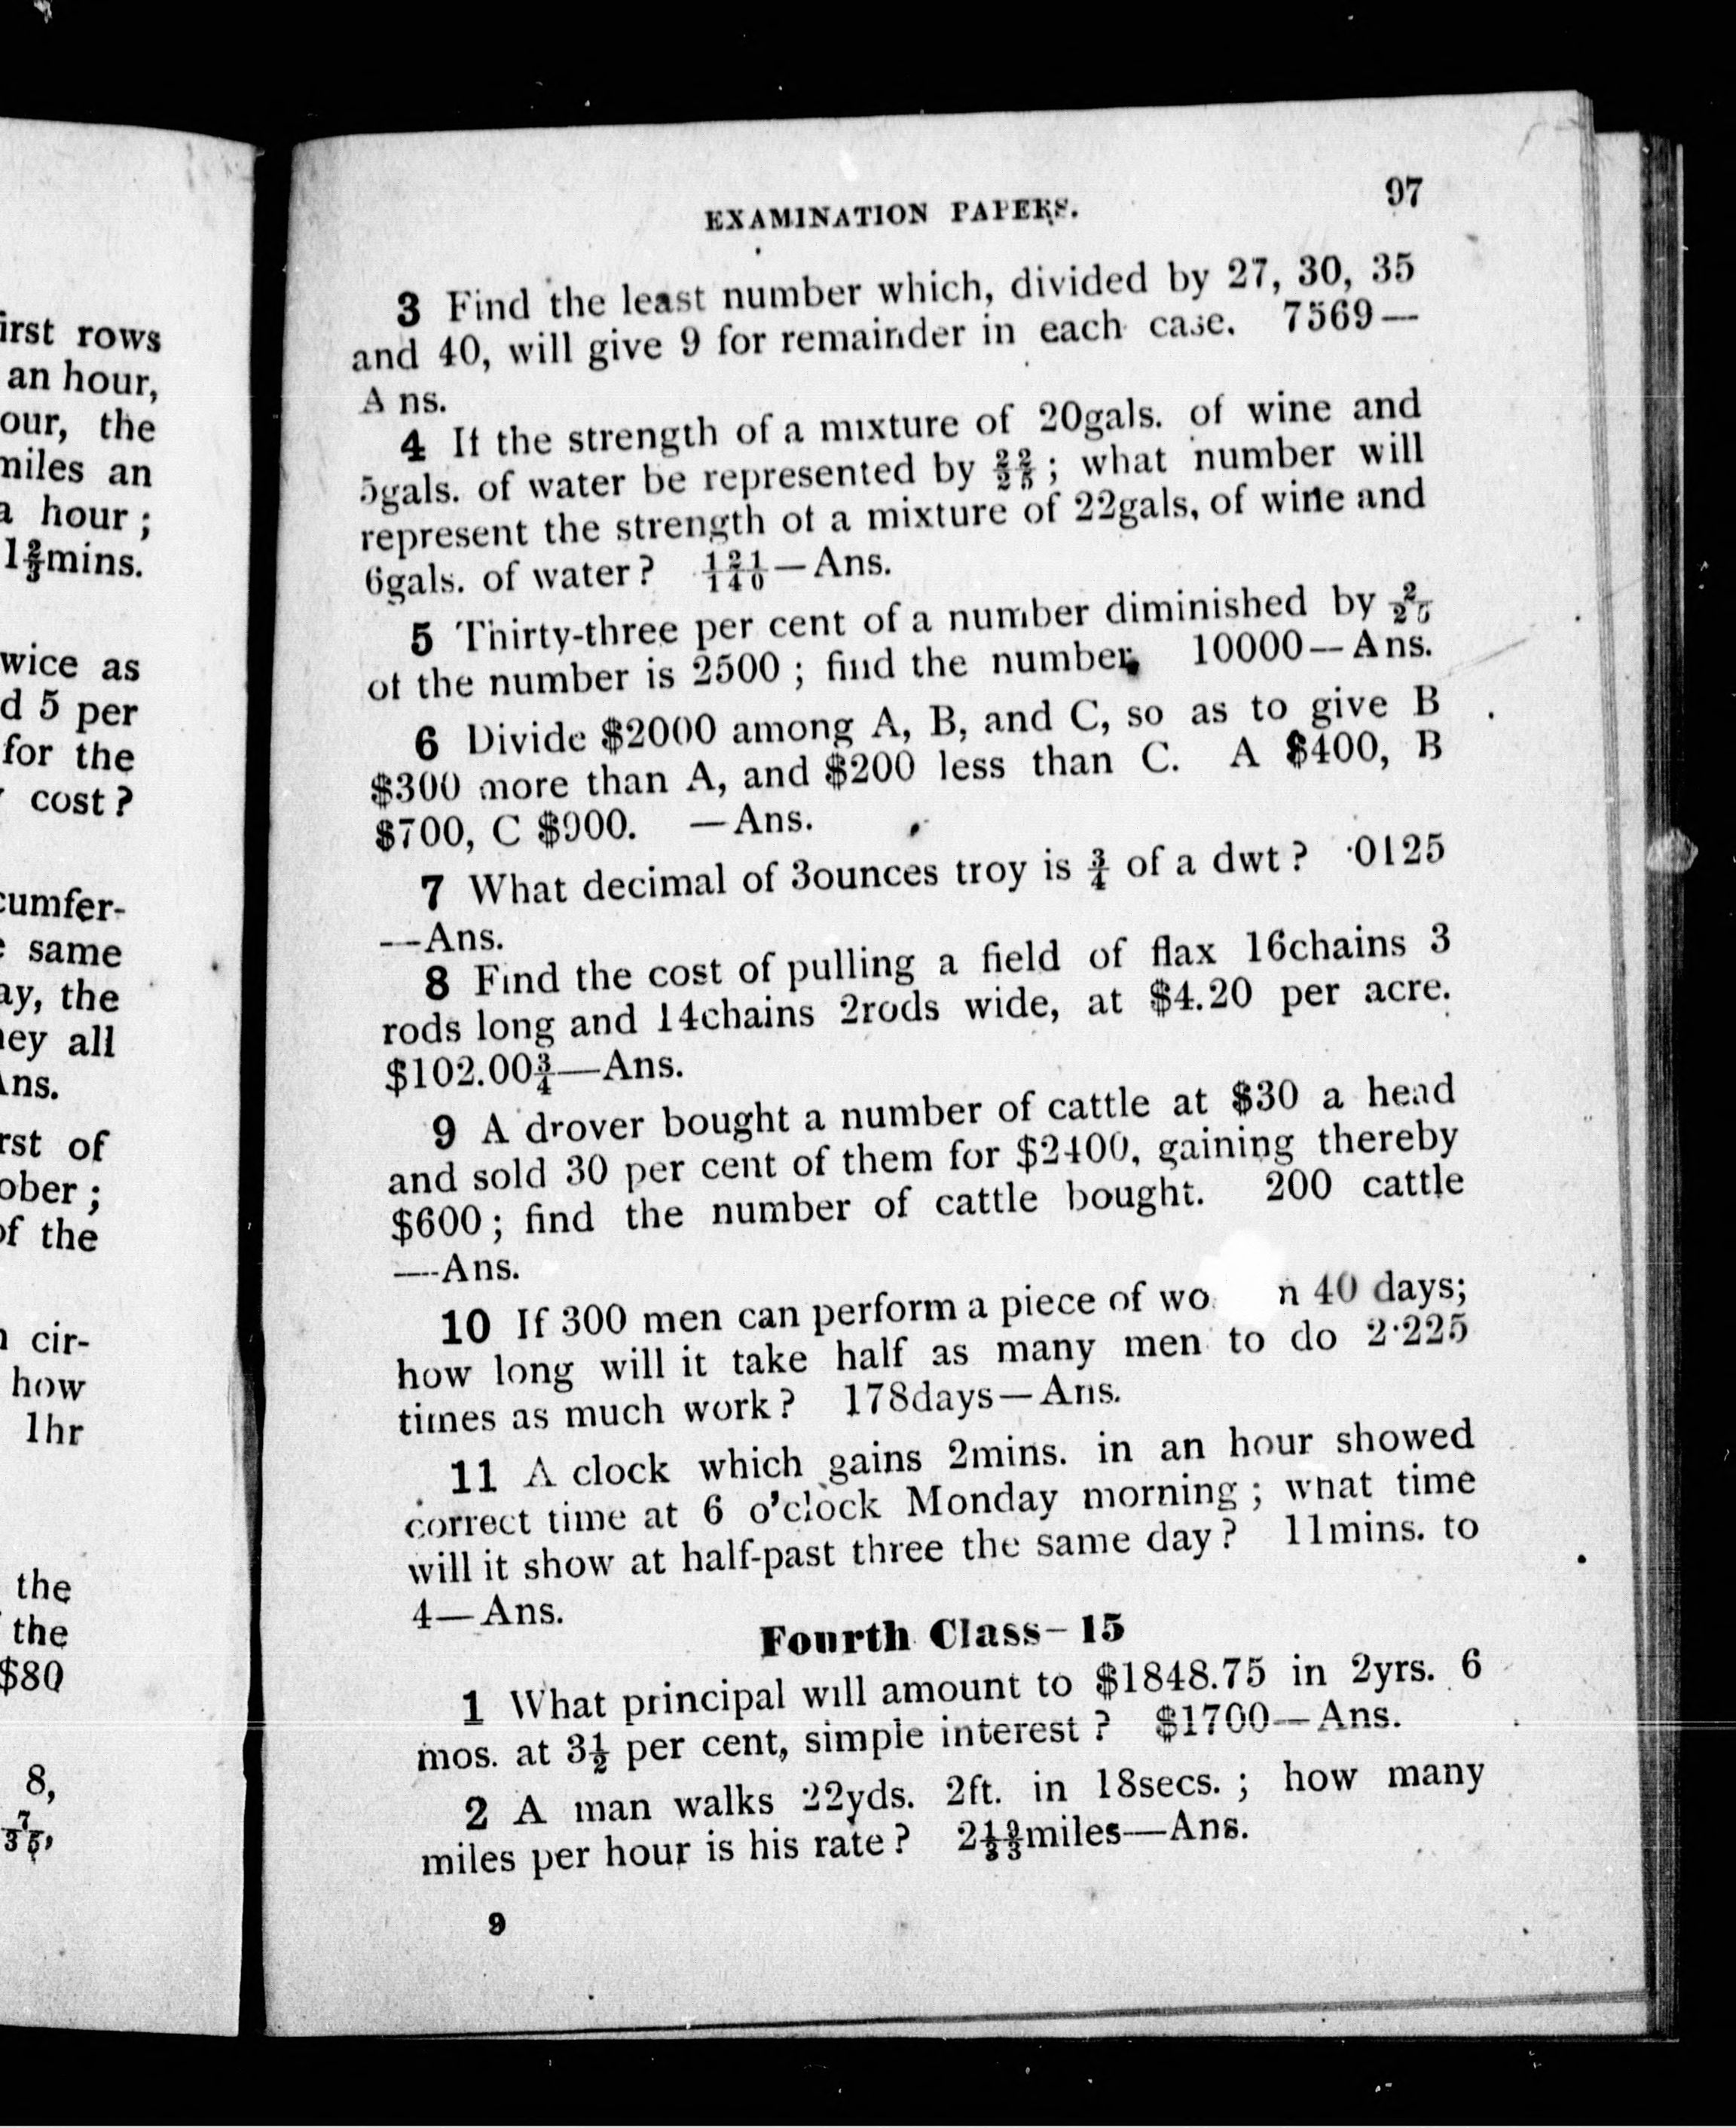 irst rows
an hour,
our, the
miles an
a hour;
1⅔mins.
wice as
d 5 per
for the
cost?
cumfer-
same
ay, the
ey all
Ans.
rst of
ober;
of the
cir-
how
1hr
the
the
$80
8,
7/35,
EXAMINATION PAPERS.
97
3 Find the least number which, divided by 27, 30, 35
and 40, will give 9 for remainder in each case. 7569—
Ans.
4 If the strength of a mixture of 20gals. of wine and
5gals. of water be represented by 22/25; what number will
represent the strength of a mixture of 22gals, of wine and
6gals. of water? 121/140—Ans.
5 Thirty-three per cent of a number diminished by 2/25
of the number is 2500; find the number. 10000—Ans.
6 Divide $2000 among A, B, and C, so as to give B
$300 more than A, and $200 less than C. A $400, B
$700, C $900. —Ans.
7 What decimal of 3ounces troy is ¾ of a dwt? ·0125
—Ans.
8 Find the cost of pulling a field of flax 16chains 3
rods long and 14chains 2rods wide, at $4.20 per acre.
$102.00¾—Ans.
9 A drover bought a number of cattle at $30 a head
and sold 30 per cent of them for $2400, gaining thereby
$600; find the number of cattle bought. 200 cattle
—Ans.
10 If 300 men can perform a piece of wo n 40 days;
how long will it take half as many men to do 2·225
times as much work? 178days—Ans.
11 A clock which gains 2mins. in an hour showed
correct time at 6 o'clock Monday morning; what time
will it show at half-past three the same day? 11mins. to
4—Ans.
Fourth Class—15
1 What principal will amount to $1848.75 in 2yrs. 6
mos. at 3½ per cent, simple interest? $1700—Ans.
2 A man walks 22yds. 2ft. in 18secs.; how many
miles per hour is his rate? 2 19/33miles—Ans.
9